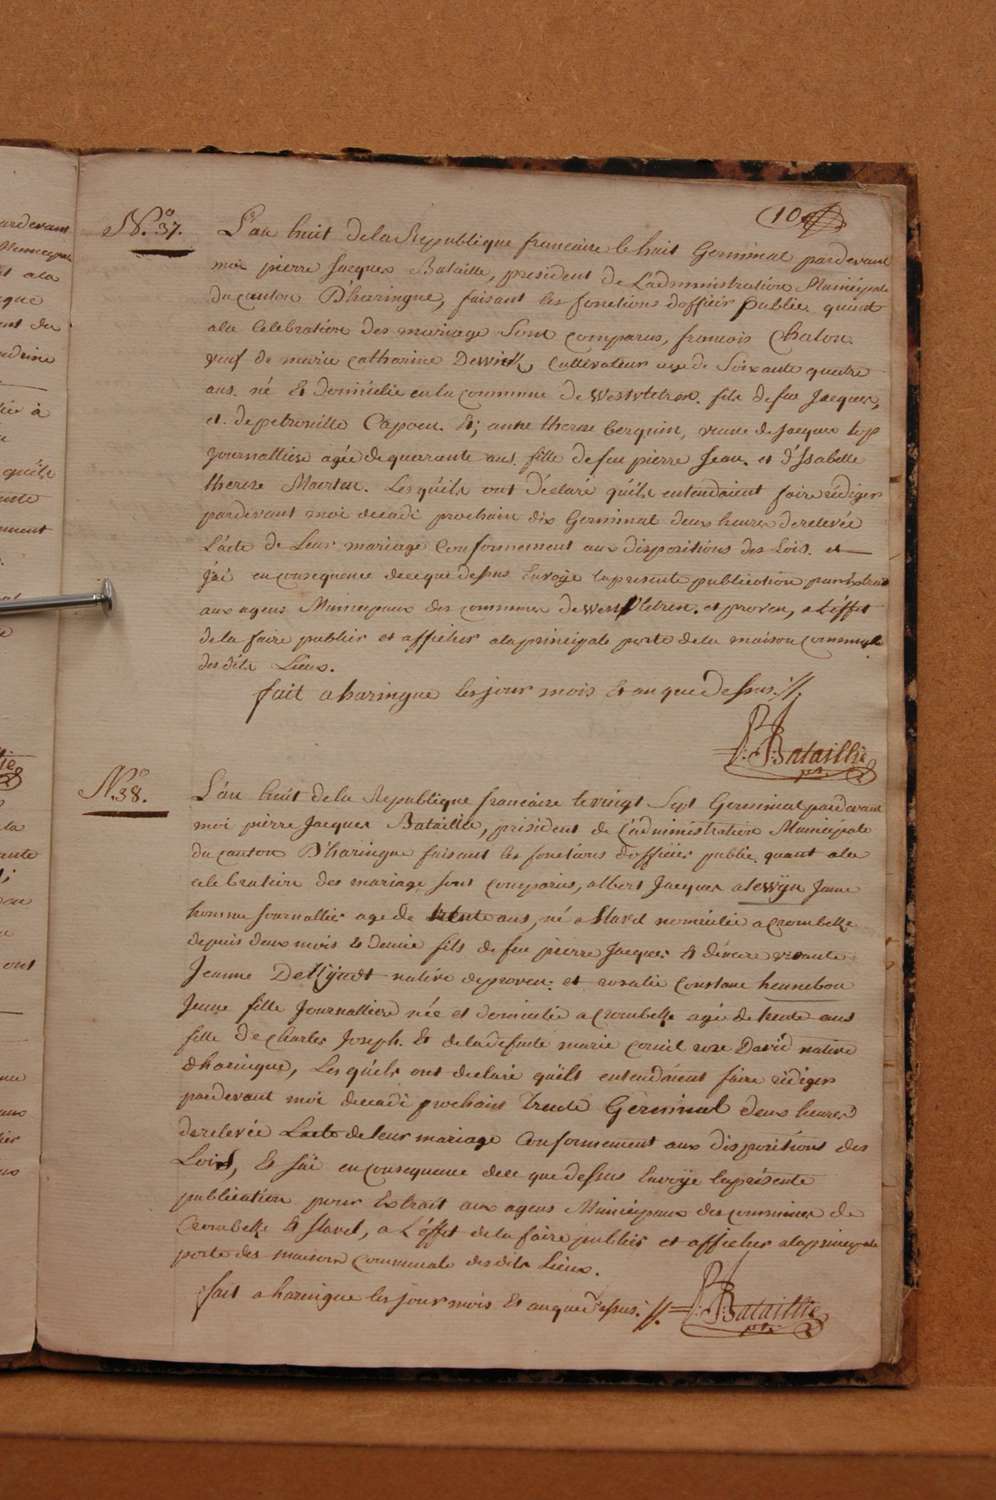 (10
N.º 37. L'an huit de la Republique francaise le huit Germinal pardevant
moi pierre Jacques Bataille, president de L'administration Municipale
du canton D'haringue, faisant les fonctions d'officier publie quant
a la Celebration des mariage Sont comparus, francois Chaton
veuf de marie catharine Dewick, Cultivateur age de Soixante quatre
ans. né Et domicilie en la commune de Westvletren. fils de feu Jacques,
et de petronille Capoen. Et; anne therese berquin, veuve de Jacques top
Journalliere agée de quarante ans. fille de feu pierre Jean. et d'Isabelle
therese Maerten. Lesquels ont déclaré qu'ils entendaient faire rédiger
pardevant moi decadi prochain dix Germinal deux heures de relevée
L'acte de Leur mariage Conformement aux dispositions des Lois. et
J'ai en consequence de ce que dessus Envoyé la presente publication par Extrait
aux agens Municipaux des communes de Westvletren. et proven, a L'effet
de la faire publier et afficher a la principale porte de la maison commune
des dits Lieux.
fait a haringue les jour mois Et an que Dessus.//
P: J: Bataillie
pdt
N.º 38. L'an huit de la Republique francaise le vingt Sept Germinal pardevant
moi pierre Jacques Bataille, président de L'administration Municipale
du canton D'haringue faisant les fonctions d'officier publie quant a la
celebration des mariage sont comparus, albert Jacques alewyn Jeune
homme Journallier age de trente ans, né a Stavel nomicilié a Crombelke
depuis deux mois Et demie fils de feu pierre Jacques Et d'encore vivante
Jeanne Debyndt native de proven: et rosalie Constane hennebou
Jeune fille Journalliere née et domicilié a Crombelke agé de trente ans
fille de Charles Joseph. Et de la defunte marie Corneil rose David native
d'haringue, Lesquels ont declaré qu'ils entendaient faire rédiger
pardevant moi decadi prochain trente Germinal deux heures
de relevée L'acte de leur mariage Conformement aux dispositions des
Lois, Et J'ai en consequence de ce que dessus Envoyé la présente
publication pour Extrait aux agens Municipaux des communes de
Crombelke Et Stavel, a L'éffet de la faire publier et afficher a la principale
porte des maison Communale des dits Lieux.
fait a haringue les jour mois Et an que Dessus.//.
P: J: Bataillie
pdt.